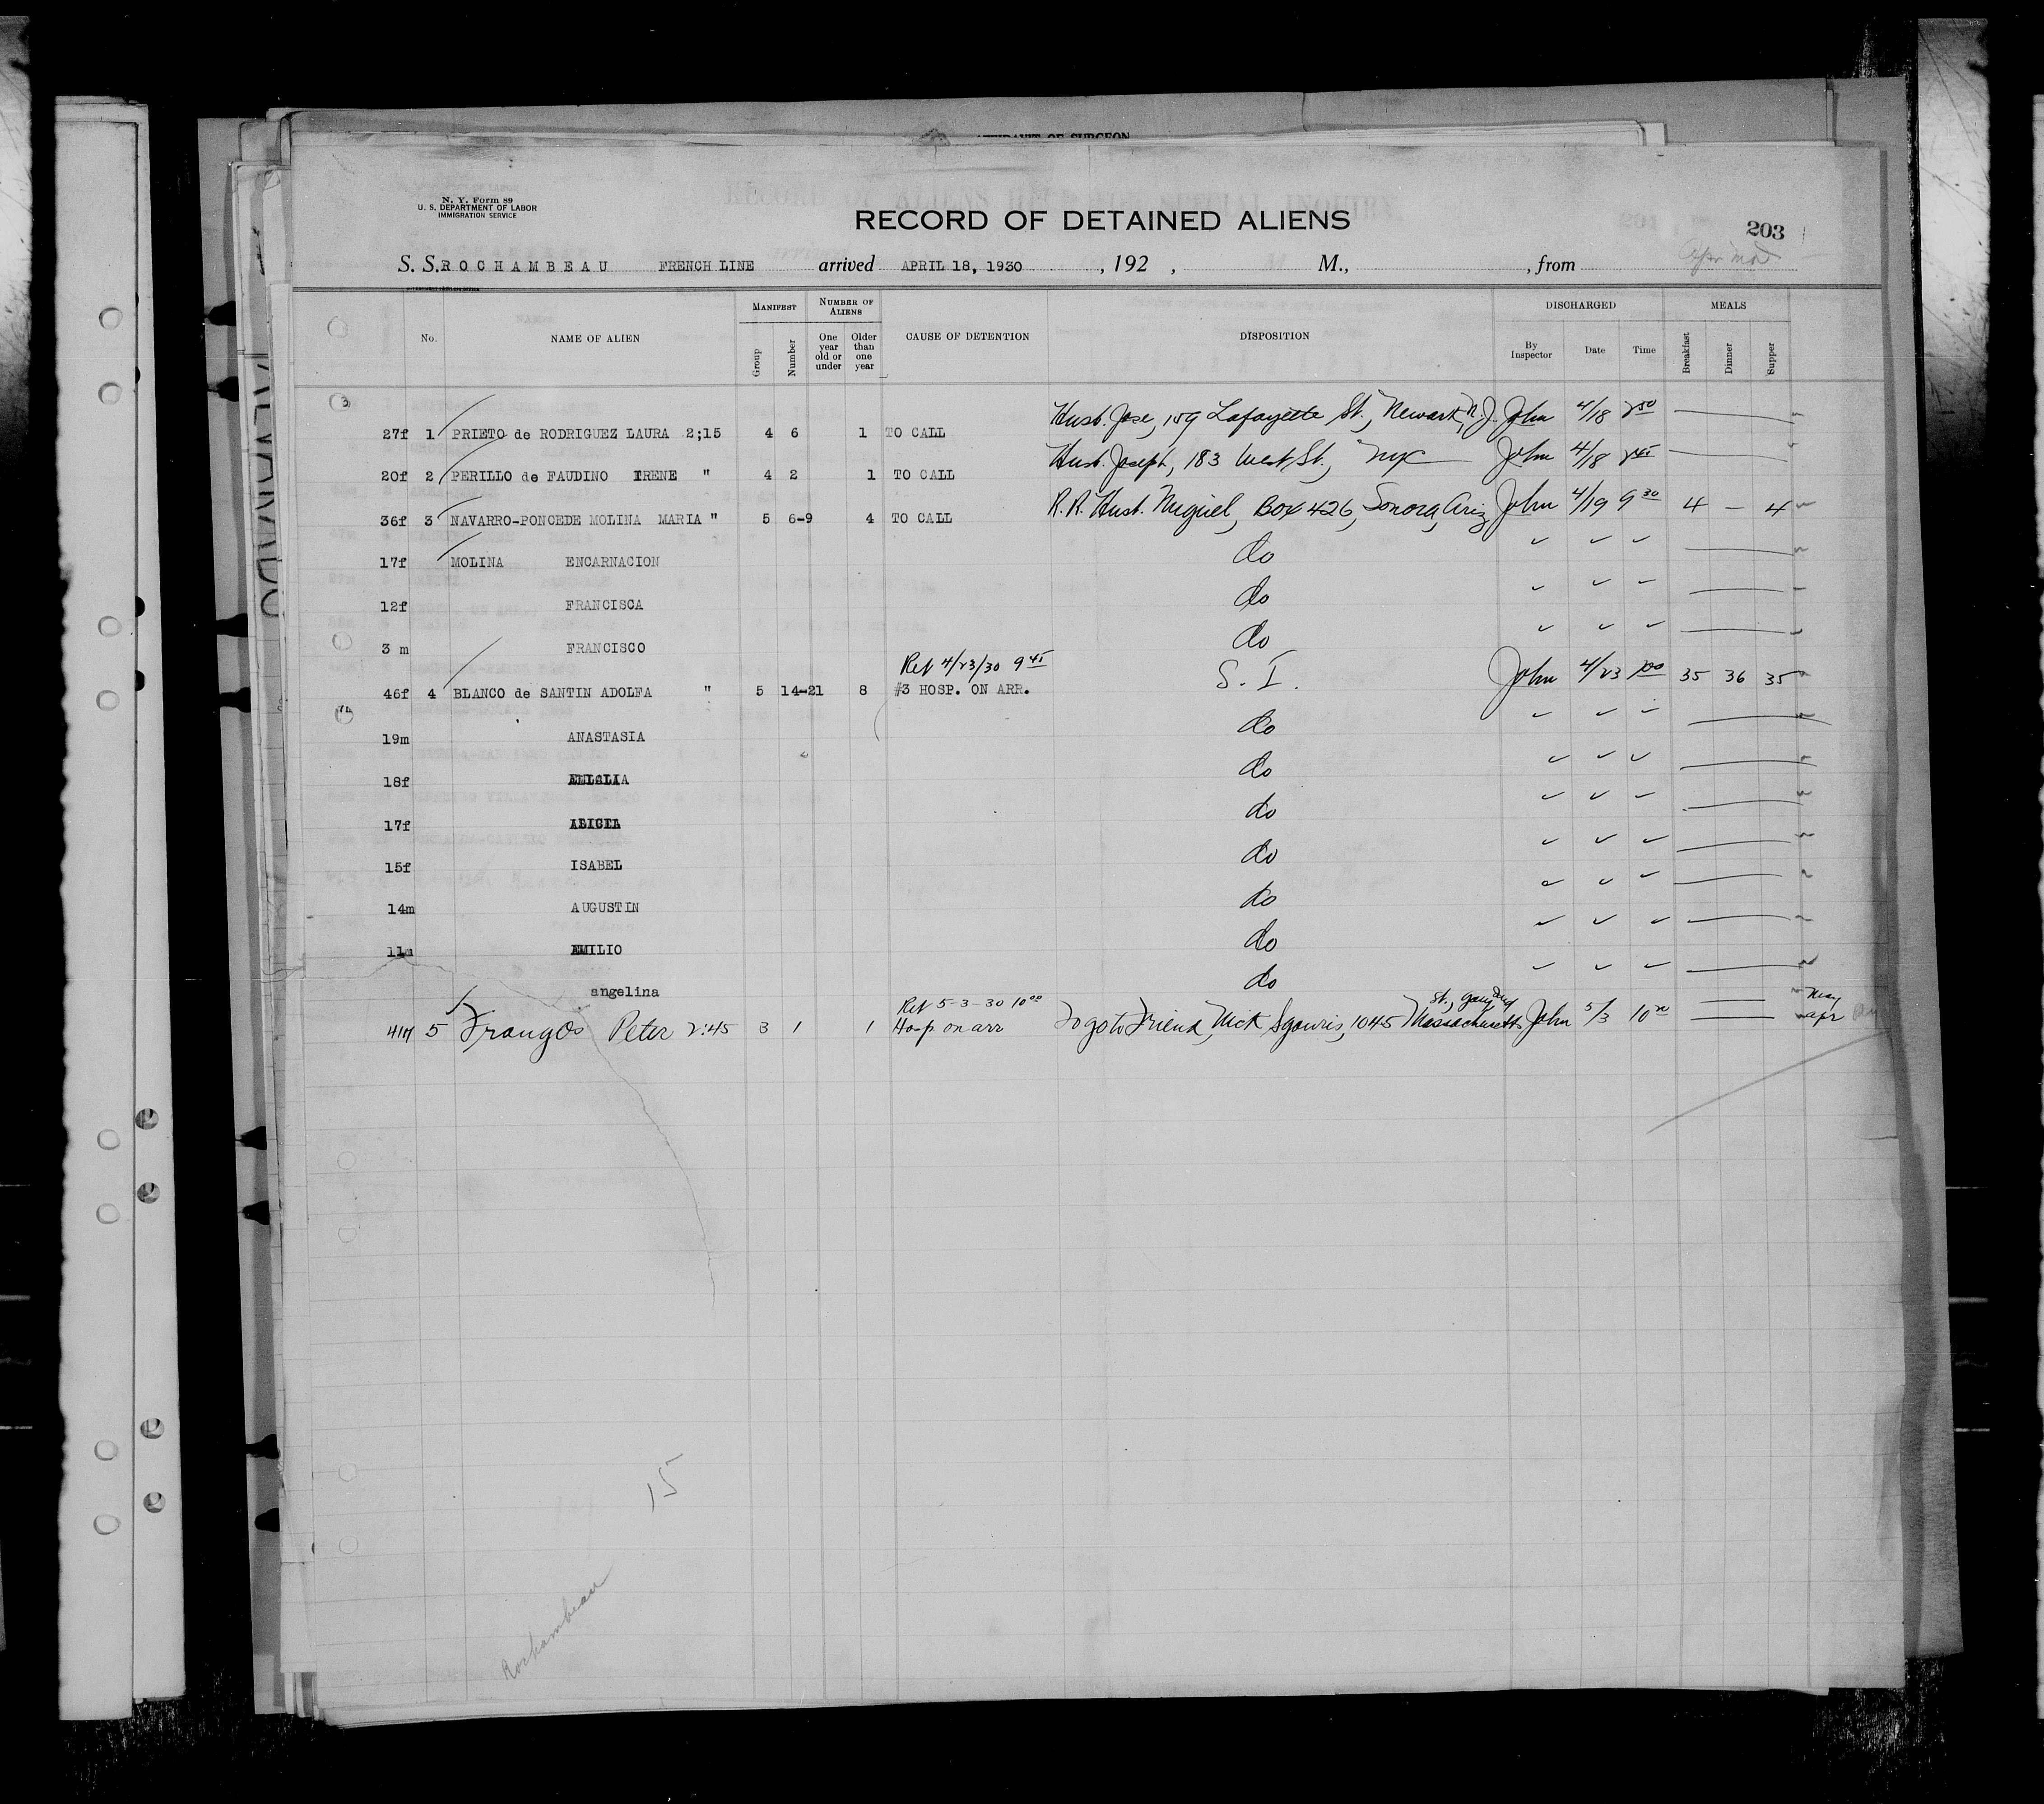 AFFIDAVIT OF SURGEON
N. Y. Form 89
U. S. DEPARTMENT OF LABOR
IMMIGRATION SERVICE
RECORD OF DETAINED ALIENS
203
S. S. ROCHAMBEAU FRENCH LINE arrived APRIL 18, 1930 , 192 , M., , from
MANIFEST NUMBER OF ALIENS DISCHARGED MEALS
No. NAME OF ALIEN Group Number One year old or under Older than one year CAUSE OF DETENTION DISPOSITION By Inspector Date Time Breakfast Dinner Supper
27f 1 PRIETO de RODRIGUEZ LAURA 2;15 4 6 1 TO CALL Husb. Jose, 159 Lafayette St., Newark, N.J. John 4/18 2 50
20f 2 PERILLO de FAUDINO IRENE " 4 2 1 TO CALL Husb. Joseph, 183 West St., NYC John 4/18 2 45
36f 3 NAVARRO-PONCEDE MOLINA MARIA " 5 6-9 4 TO CALL R.R. Husb. Miguel, Box 426, Sonora, Ariz John 4/19 9 30 4 – 4
17f MOLINA ENCARNACION do
12f FRANCISCA do
3 m FRANCISCO do
Ret 4/23/30 9 45
46f 4 BLANCO de SANTIN ADOLFA " 5 14-21 8 #3 HOSP. ON ARR. S. I. John 4/23 35 36 35
19m ANASTASIA do
18f do
17f do
15f ISABEL do
14m AUGUSTIN do
11m EMILIO do
angelina do
Ret 5-3-30 10 00 St., Gary Ind May
41m 5 Frangos Peter 2:45 3 1 1 Hosp on arr To go to Friend, Nick Sgouris, 1045 Massachusetts John 5/3 10 00 apr
15
Rochambeau